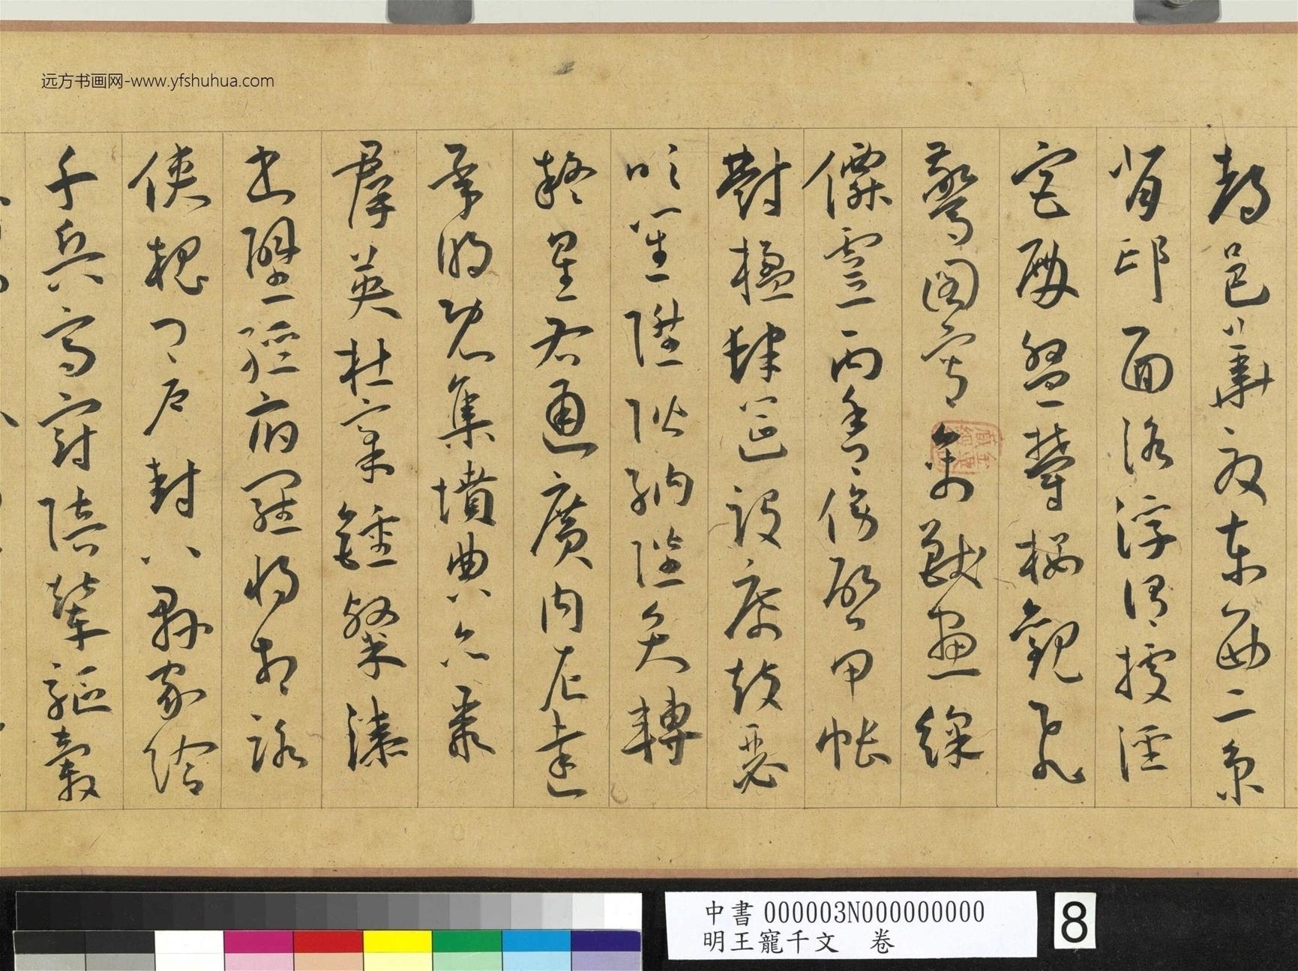 远方书画网-www.yfshuhua.com
都邑華夏東西二京
背邙面洛浮渭據涇
宮殿盤鬱樓觀飛
驚圖寫禽獸畫綵
僊靈丙舍傍啓甲帳
對楹肆筵設席鼓瑟
吹笙陞階納陛弁轉
疑星右通廣內左達
承明既集墳典亦聚
羣英杜稾鍾隸漆
書壁經府羅將相路
俠槐卿戶封八縣家給
千兵高冠陪輦驅轂
中書 000003N000000000
明王寵千文 卷
8